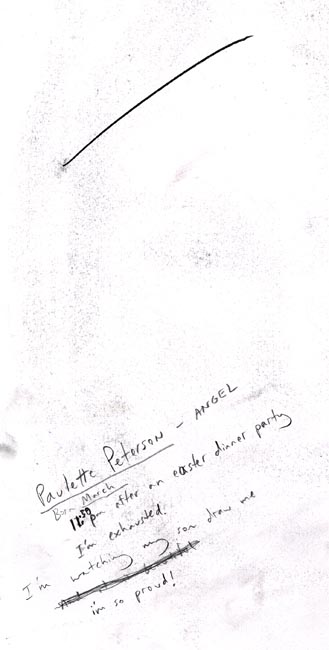 Paulette Peterson - ANGEL
Born March
11:50 pm after an easter dinner party
I'm exhausted.
I'm watching my son draw me
im so proud!